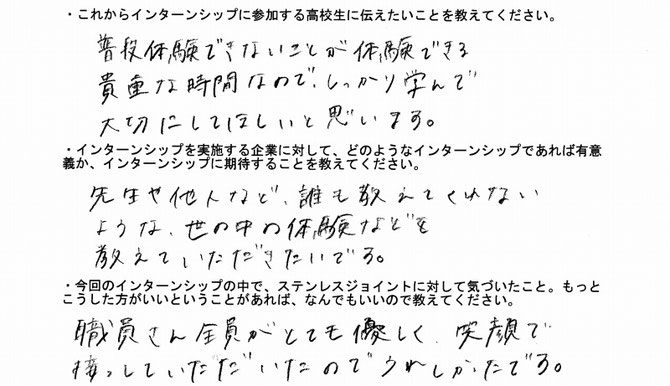 ・これからインターンシップに参加する高校生に伝えたいことを教えてください。
普段体験できないことが体験できる
貴重な時間なので、しっかり学んで
大切にしてほしいと思います。
・インターンシップを実施する企業に対して、どのようなインターンシップであれば有意
義か、インターンシップに期待することを教えてください。
先生や他人など、誰も教えてくれない
ような、世の中の体験などを
教えていただきたいです。
・今回のインターンシップの中で、ステンレスジョイントに対して気づいたこと。もっと
こうした方がいいということがあれば、なんでもいいので教えてください。
職員さん全員がとても優しく、笑顔で
接っしていただだいたのでうれしかったです。